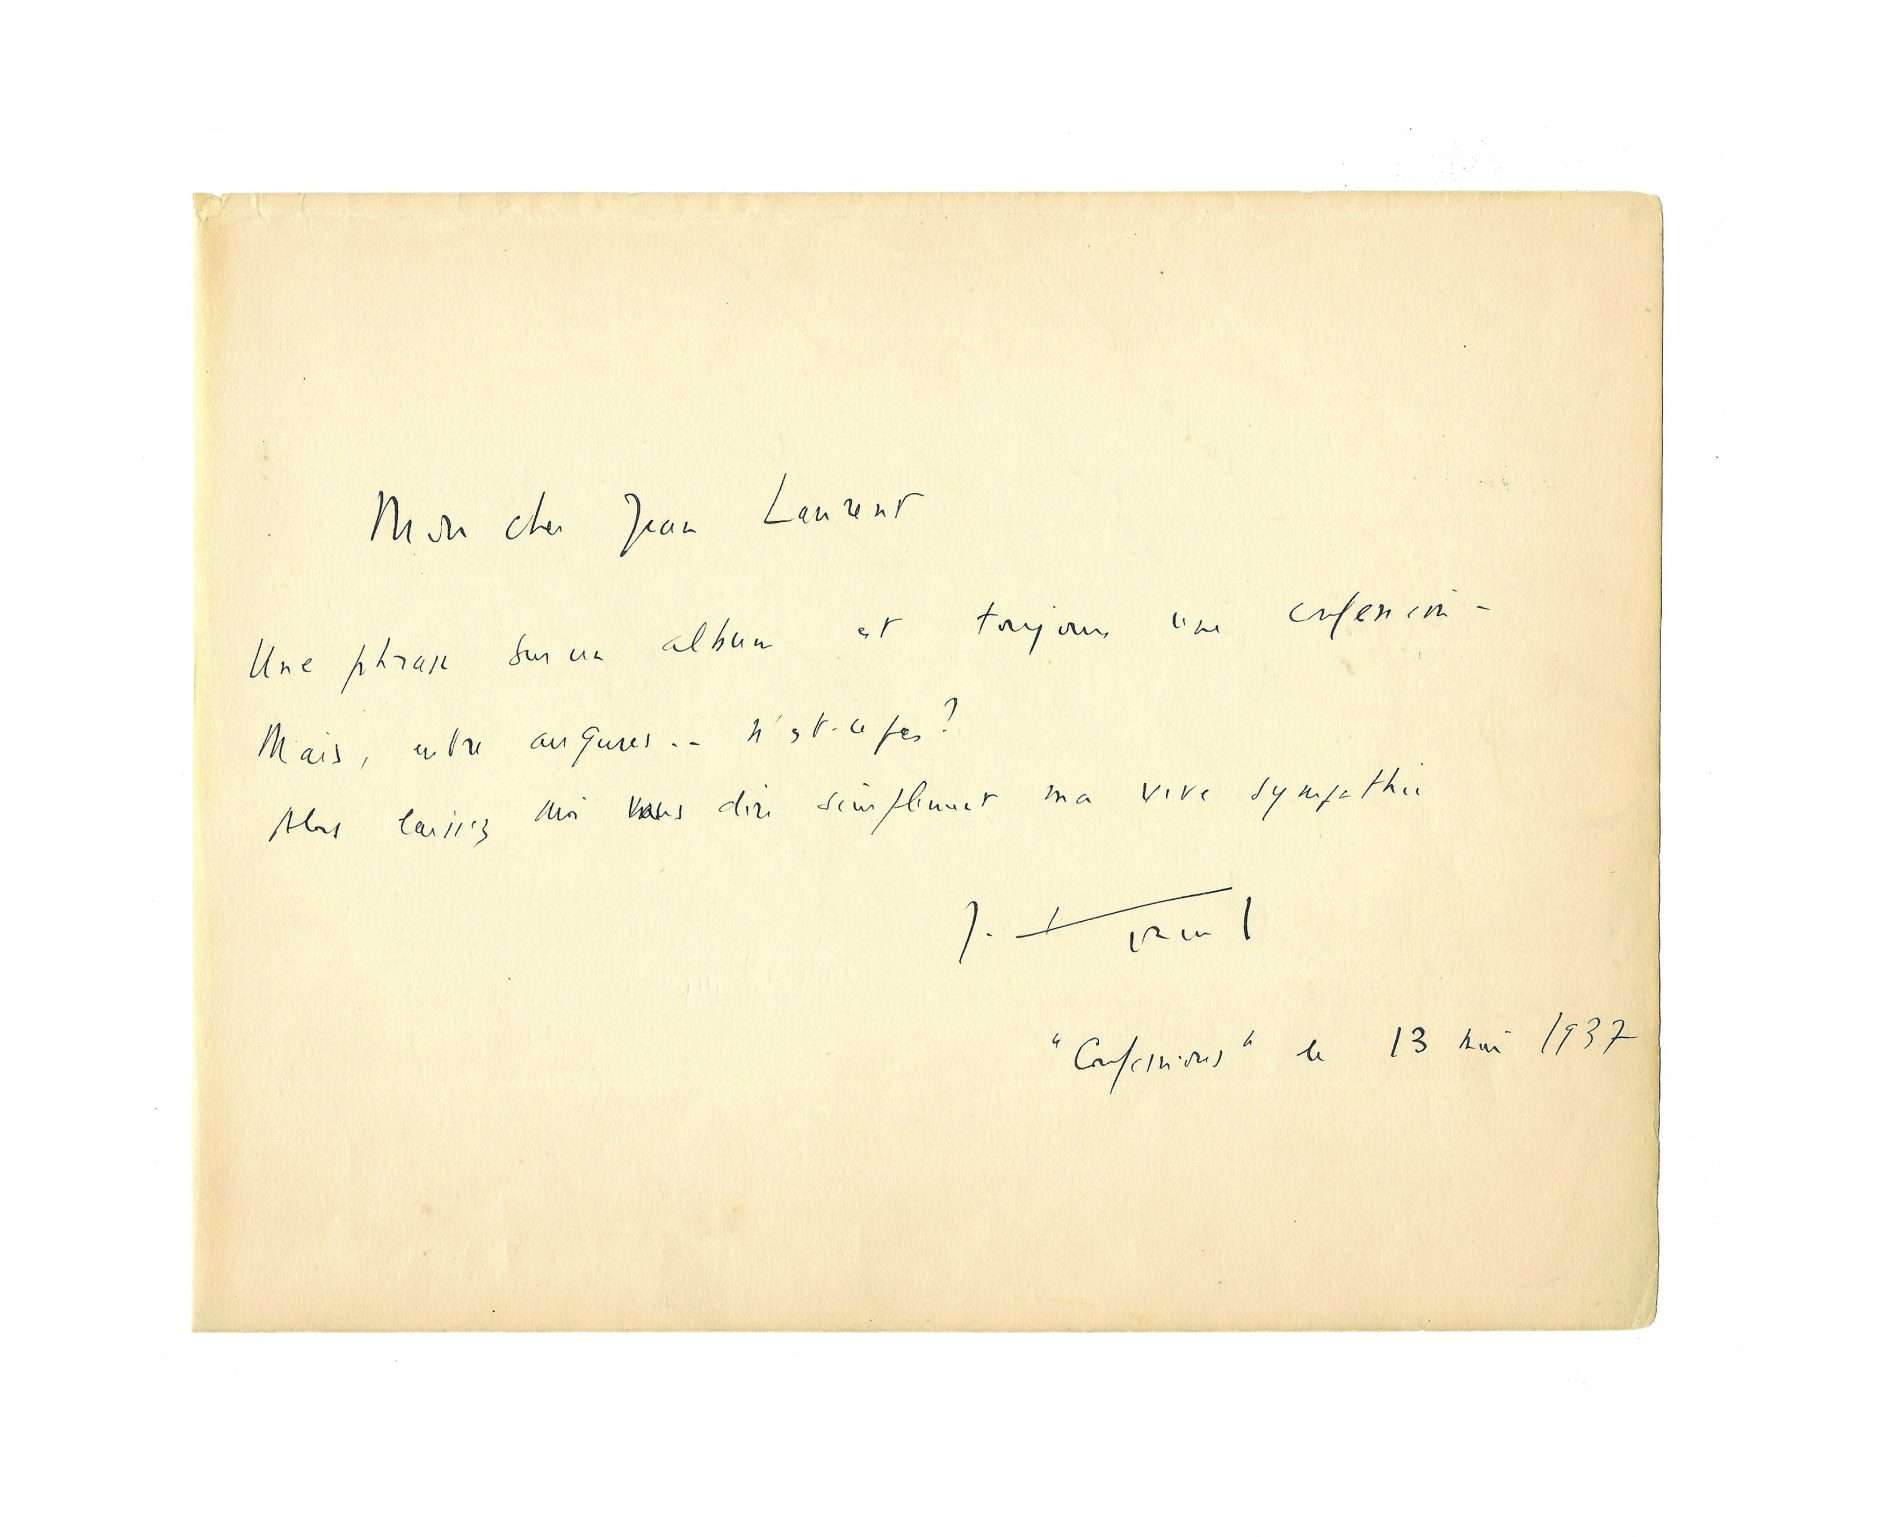 Mon cher Jean Laurent
Une phrase sur un album est toujours une confession -
Mais, entre augures.. n'est-ce pas ?
Alors laissez moi vous dire simplement ma vive sympathie
J.
"Confessions" le 13 mai 1937